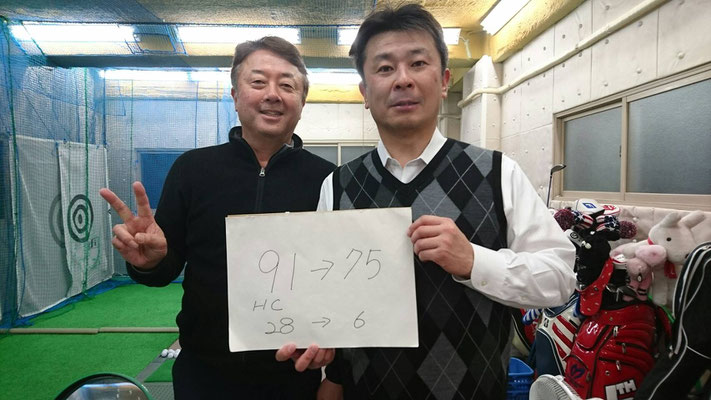 91→75
HC
28 → 6
TH